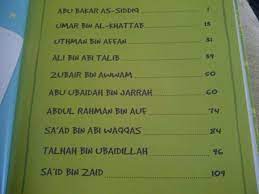 ABU BAKAR AS-SIDDIQ 1
UMAR BIN AL-KHATTAB 15
UTHMAN BIN AFFAN 31
ALI BIN ABI TALIB 39
ZUBAIR BIN AWWAM 50
ABU UBAIDAH BIN JARRAH 60
ABDUL RAHMAN BIN AUF 74
SA'AD BIN ABI WAQQAS 84
TALHAH BIN UBAIDILLAH 96
SA'ID BIN ZAID 109